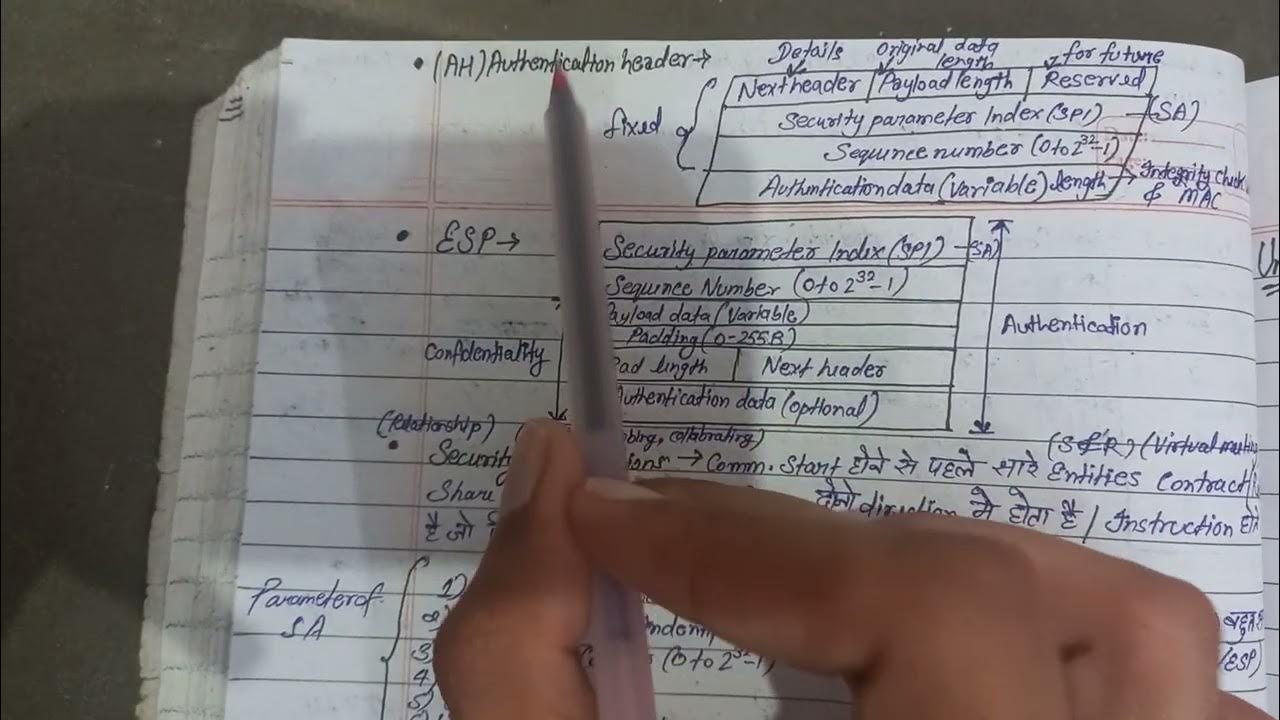 • (AH) Authentication header →
Details Original data length for future
Next header Payload length Reserved
fixed
Security parameter Index (SPI) (SA)
Sequence number (0 to 2^32-1)
Authentication data (variable) length → Integrity check & MAC
• ESP →
Security parameter Index (SPI) (SA)
Sequence Number (0 to 2^32-1)
Payload data (variable)
Padding (0-255B)
Pad length Next header
Authentication data (optional)
Confidentiality
Authentication
(Relationship) collabrating) (S & R) (Virtual
• Security → Comm. Start होने से पहले सारे Entities Contract
Share दोनो direction मे होता है / Instruction
है जो
Parameter of SA
1)
2)
3) (0 to 2^32-1) /ESP)
4
5)